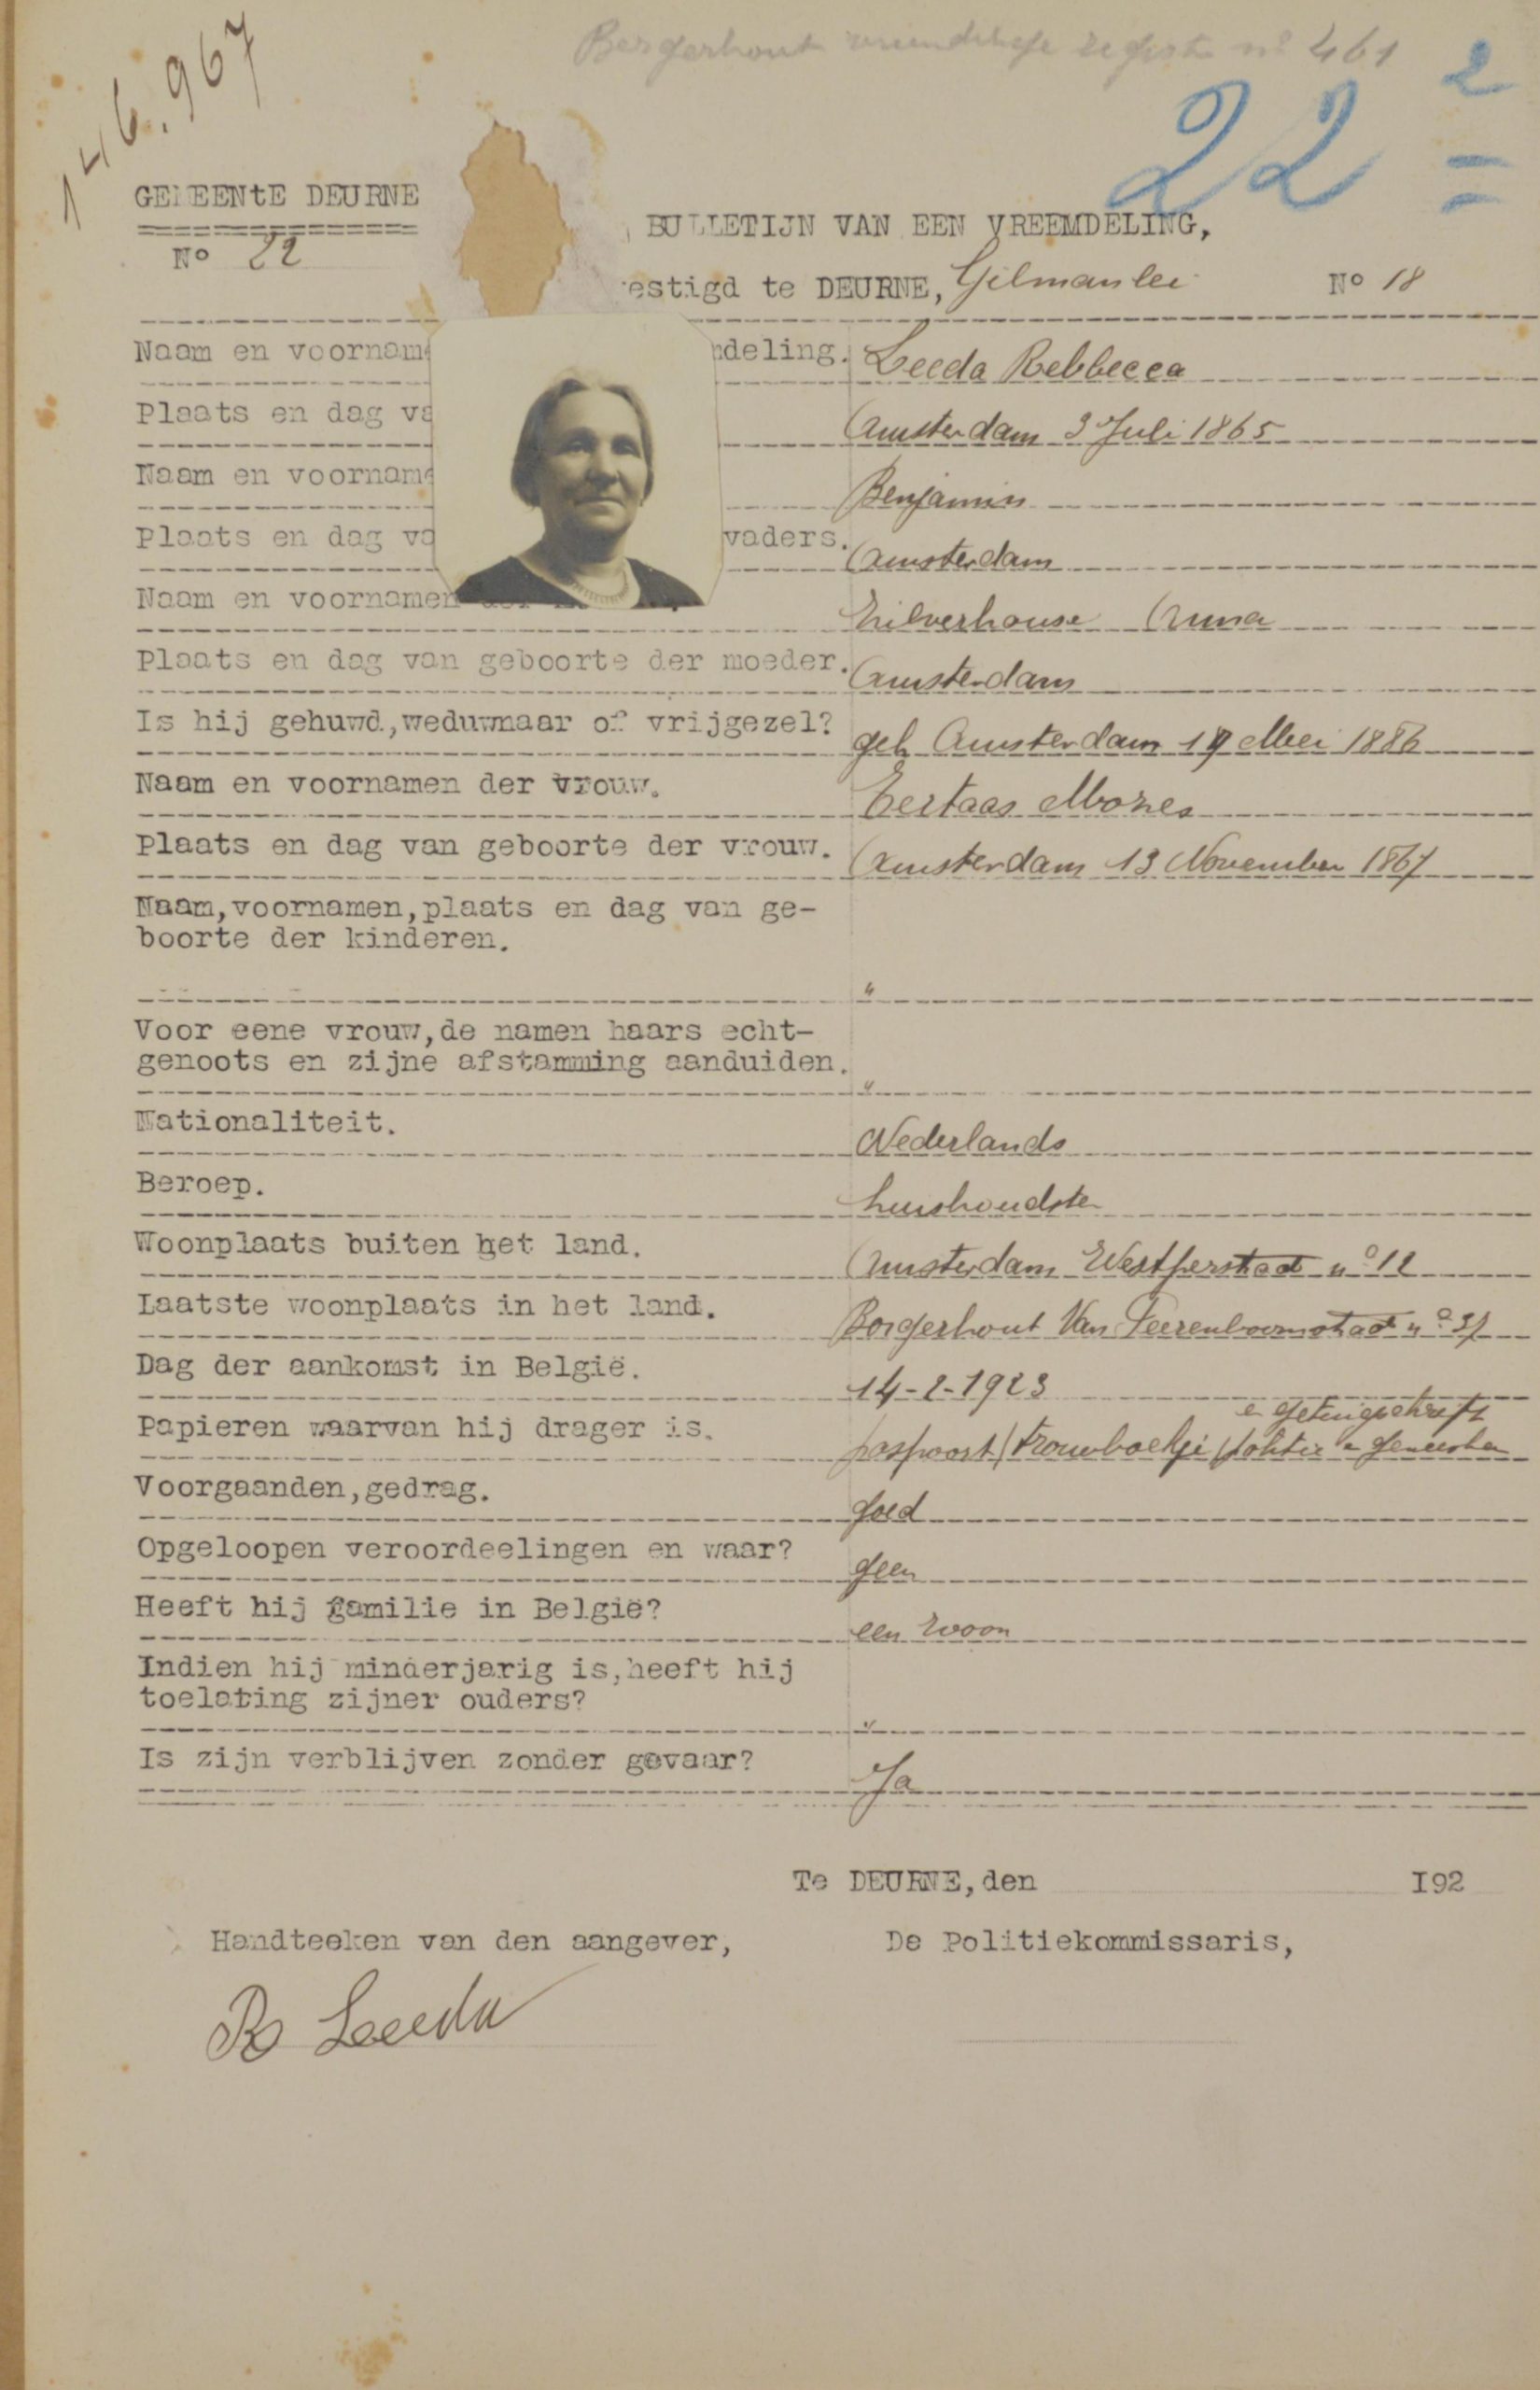 Borgerhout vreemdelge regist nº 461
146.967
22
2
GEMEENtE DEURNE
Nº 22
BULLETIJN VAN EEN VREEMDELING,
estigd te DEURNE, Gilmanlei Nº 18
Naam en voorname deling. Leeda Rebbecca
Plaats en dag va Amsterdam 3 Juli 1865
Naam en voorname Benjamin
Plaats en dag va vaders. Amsterdam
Naam en voornamen Zilverhouse Anna
Plaats en dag van geboorte der moeder. Amsterdam
Is hij gehuwd, weduwnaar of vrijgezel? geh Amsterdam 19 Mei 1886
Naam en voornamen der vrouw. Eertaas Mozes
Plaats en dag van geboorte der vrouw. Amsterdam 13 November 1867
Naam, voornamen, plaats en dag van ge-
boorte der kinderen.
"
Voor eene vrouw, de namen haars echt-
genoots en zijne afstamming aanduiden.
"
Nationaliteit. Nederlands
Beroep. huishoudster
Woonplaats buiten het land. Amsterdam straat nº 12
Laatste woonplaats in het land. Borgerhout Van Peerenboomstraat nº
Dag der aankomst in België. 14-2-1923
e getuigschrift
Papieren waarvan hij drager is. paspoort / trouwboekje / politie
Voorgaanden, gedrag. goed
Opgeloopen veroordeelingen en waar? geen
Heeft hij familie in België? een zoon
Indien hij minderjarig is, heeft hij
toelating zijner ouders?
"
Is zijn verblijven zonder gevaar? Ja
Te DEURNE, den I92
Handteeken van den aangever, De Politiekommissaris,
R Leeda